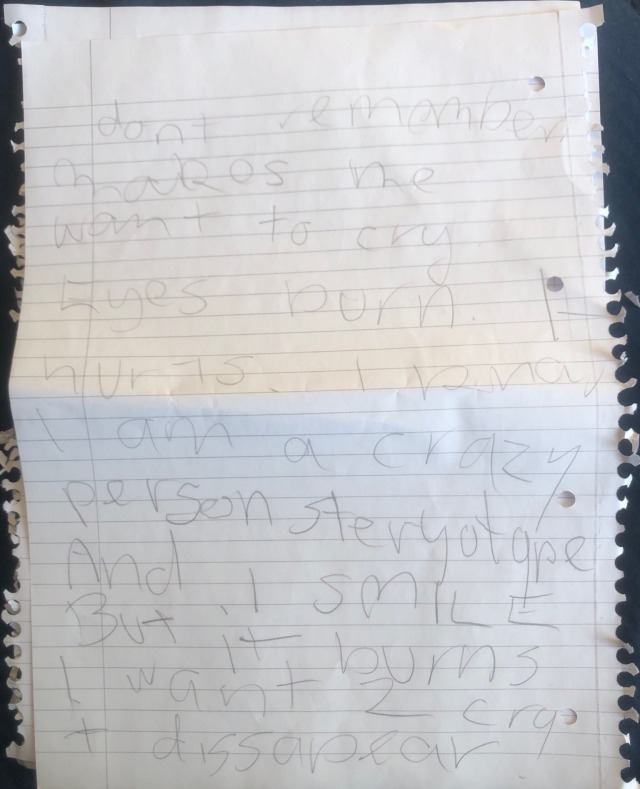 dont remember
makes me
want to cry.
Eyes burn. It
hurts. I
I am a crazy
person steryotype
And I SMILE
But it burns
I want 2 cry
+ dissapear